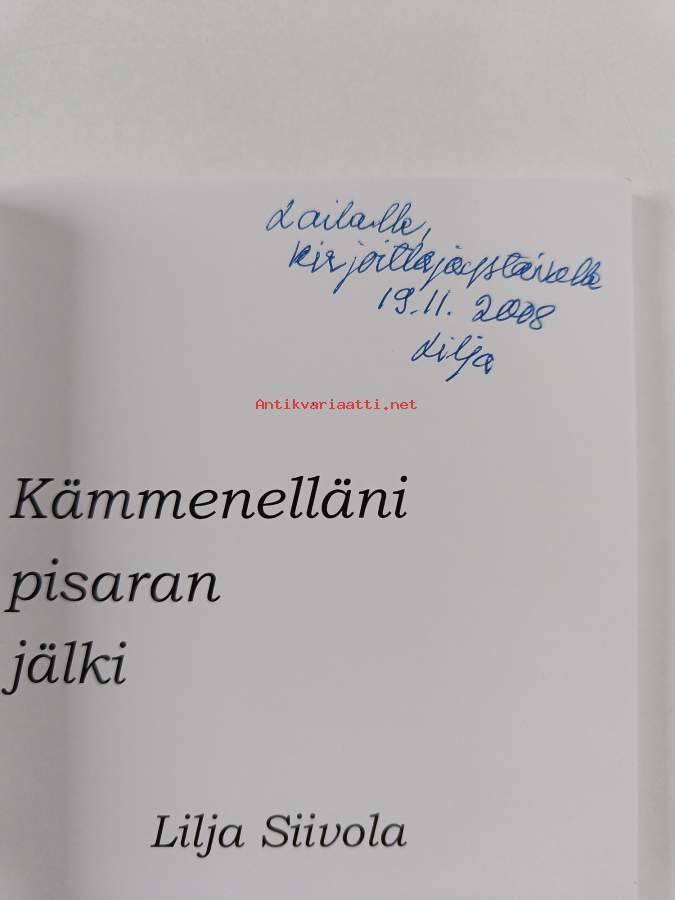 Lailalle,
kirjoittajaystävälle
19.11. 2008
Lilja
Antikvariaatti.net
Kämmenelläni
pisaran
jälki
Lilja Siivola